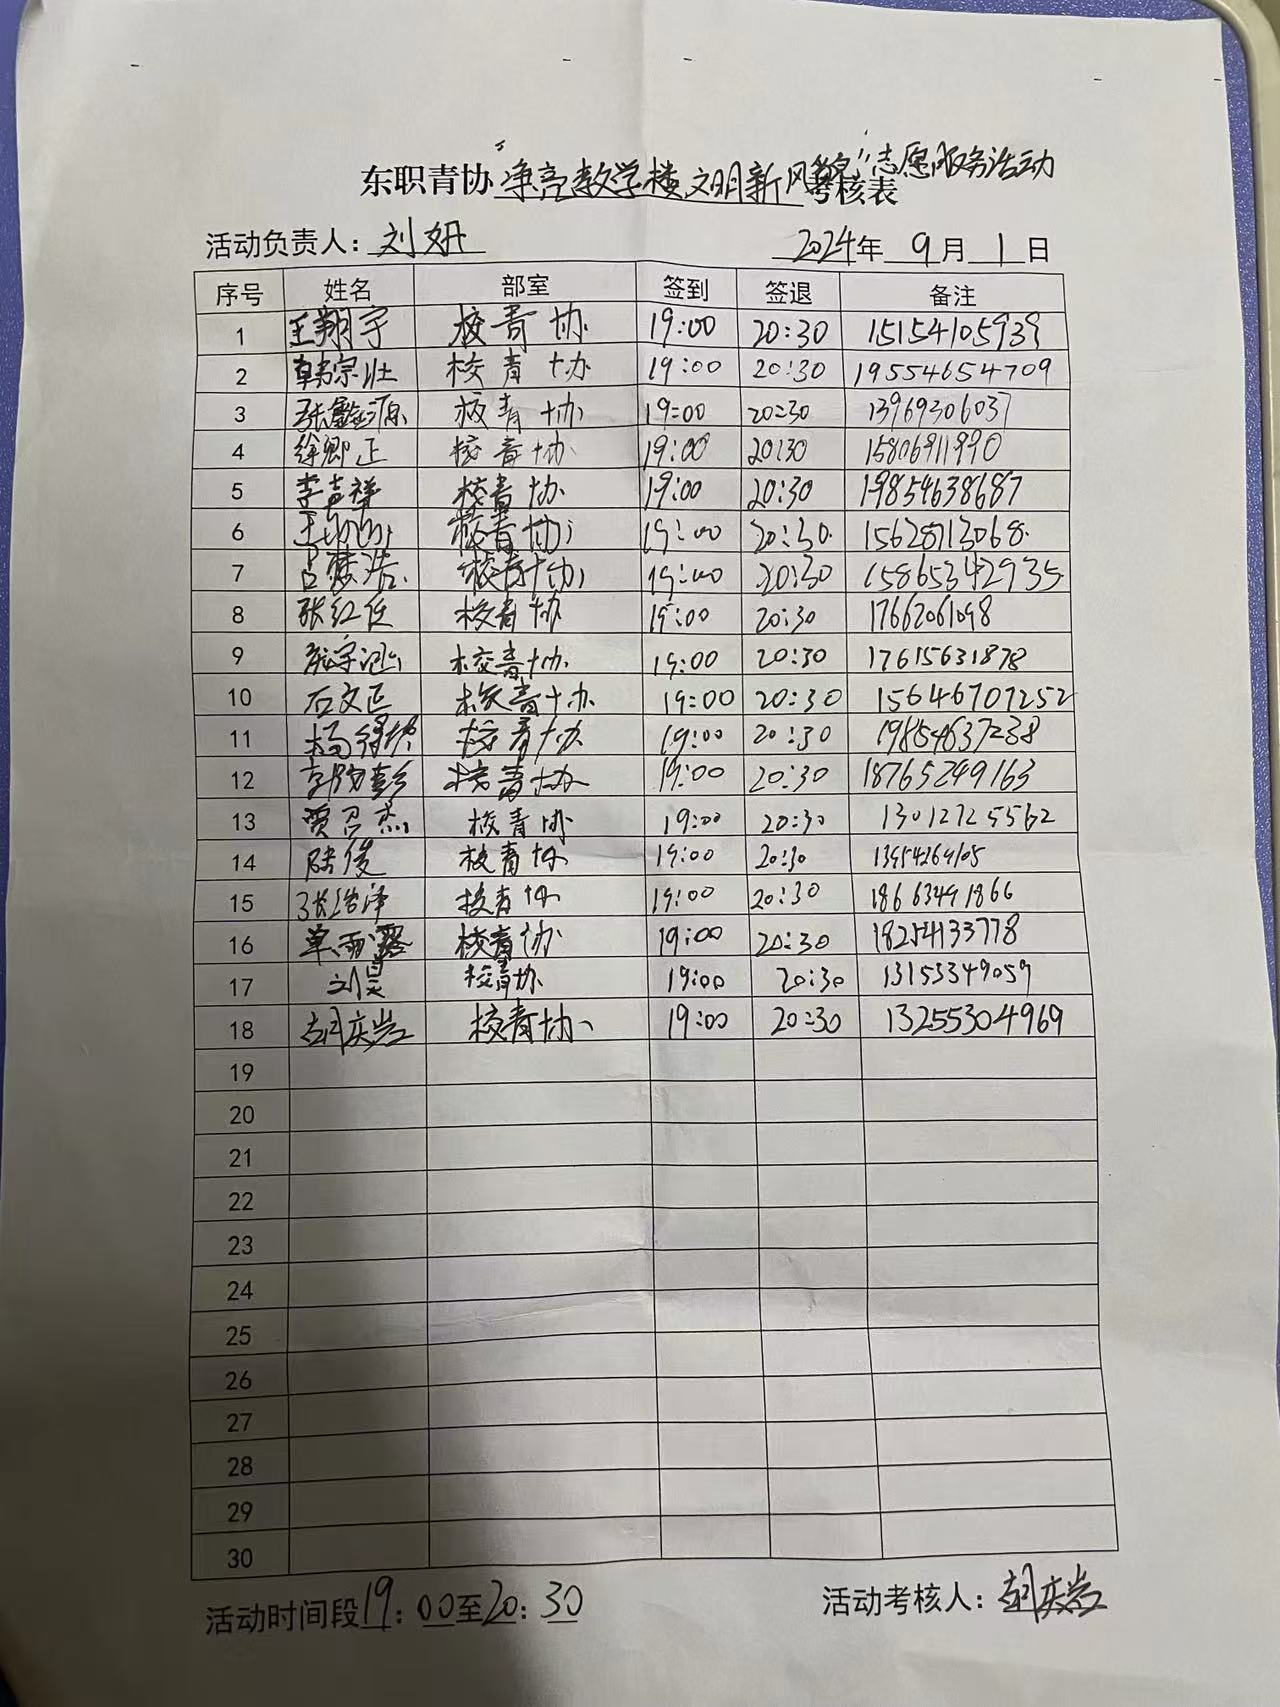 东职青协"净亮教学楼,文明新风貌"志愿服务活动考核表
活动负责人: 刘妍 2024年 9月 1日
序号 姓名 部室 签到 签退 备注
1 王翔宇 校青协 19:00 20:30 15154105939
2 韩宗壮 校青协 19:00 20:30 19554654709
3 张鑫源 校青协 19:00 20:30 13969306037
4 徐卿正 校青协 19:00 20:30 15806911990
5 李嘉祥 校青协 19:00 20:30 19854638687
6 校青协 19:00 20:30 15628713068
7 吕梦浩 校青协 19:00 20:30 15865342935
8 张红任 校青协 19:00 20:30 17662061098
9 张宇涵 校青协 19:00 20:30 17615631878
10 石文正 校青协 19:00 20:30 15646707252
11 校青协 19:00 20:30 19854637238
12 校青协 19:00 20:30 18765249163
13 贾召杰 校青协 19:00 20:30 13012725562
14 陆俊 校青协 19:00 20:30
15 张浩泽 校青协 19:00 20:30 18663491866
16 单雨露 校青协 19:00 20:30 18254133778
17 刘昊 校青协 19:00 20:30 13153349059
18 胡庆岩 校青协 19:00 20:30 13255304969
19
20
21
22
23
24
25
26
27
28
29
30
活动时间段19:00至20:30 活动考核人: 胡庆岩